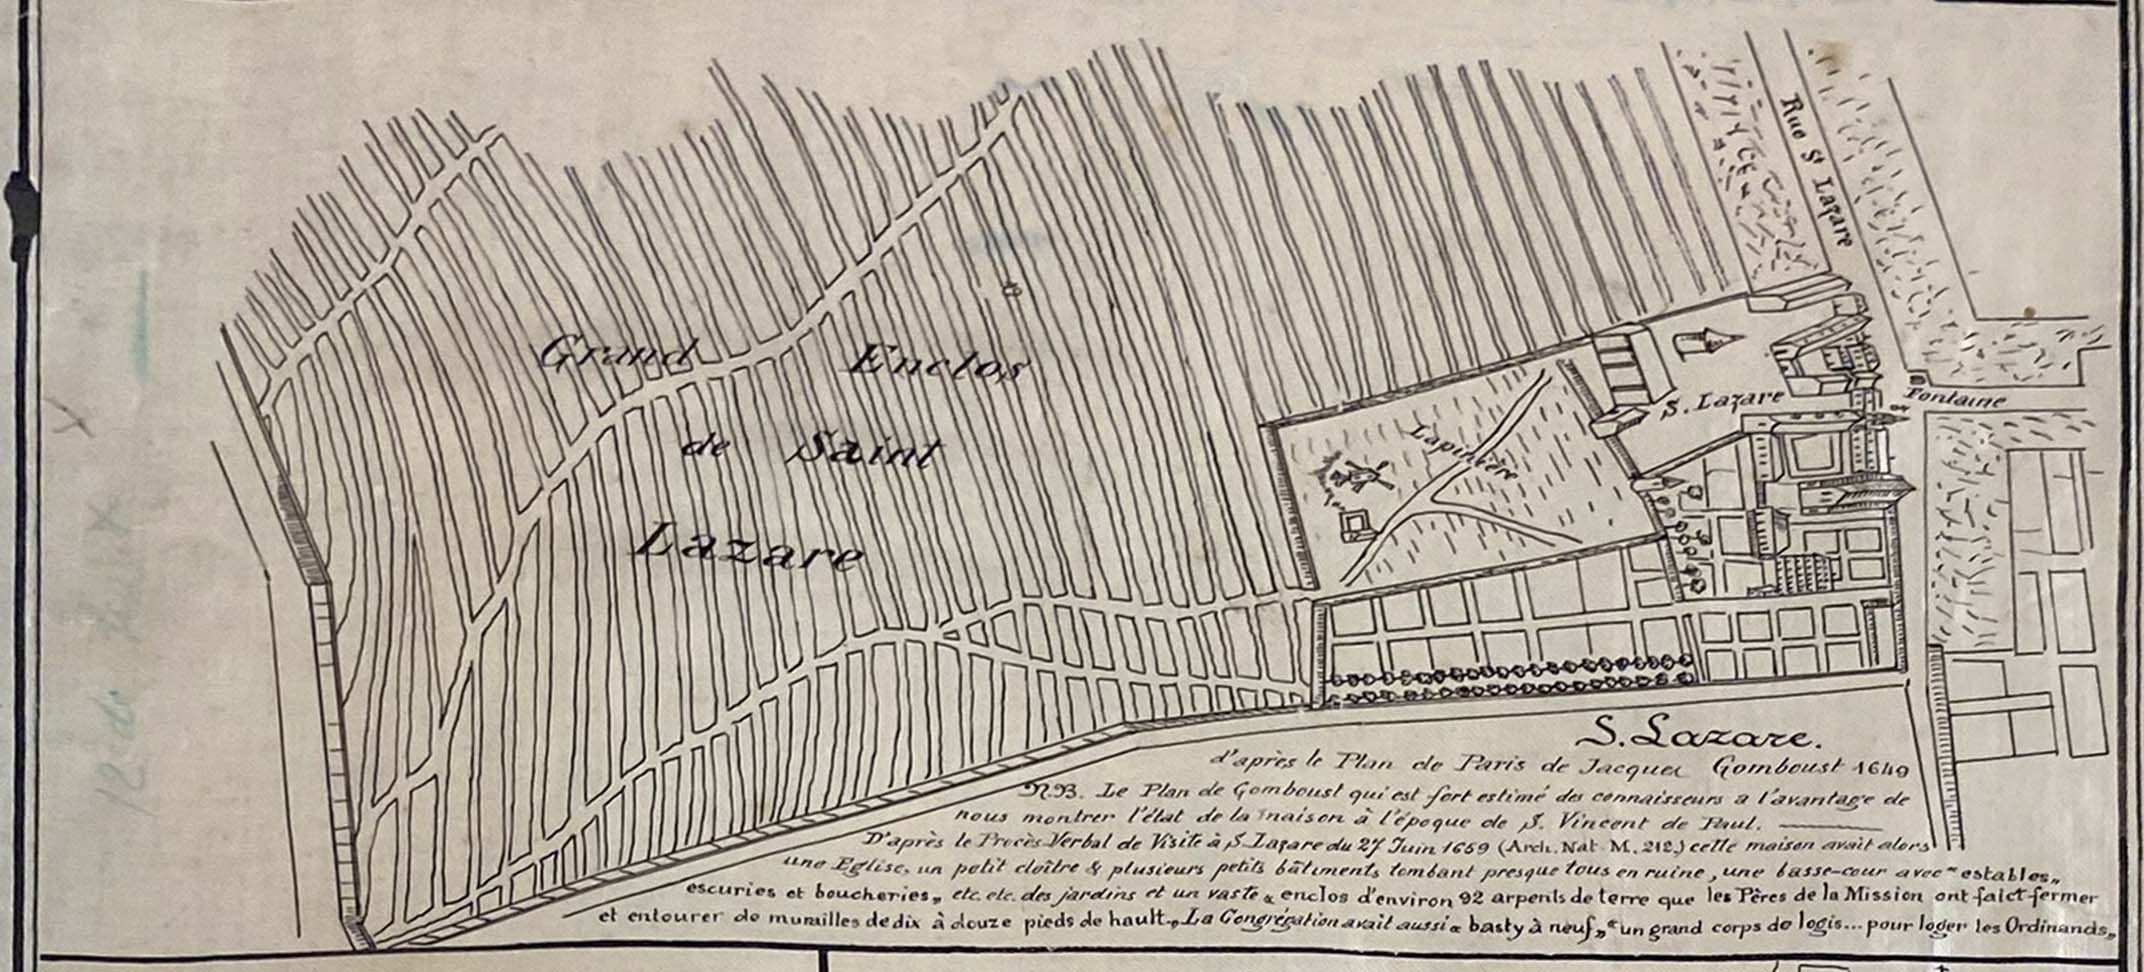 Rue St Lazare
Grand Enclos
de Saint
Lazare
Lapinière
S. Lazare
Fontaine
S. Lazare.
d'après le Plan de Paris de Jacques Gomboust 1649
N.B. Le Plan de Gomboust qui est fort estimé des connaisseurs a l'avantage de
nous montrer l'état de la maison à l'époque de S. Vincent de Paul.
D'après le Procès Verbal de Visite à S. Lazare du 27 Juin 1659 (Arch. Nat. M. 212.) cette maison avait alors
une Eglise, un petit cloître & plusieurs petits bâtiments tombant presque tous en ruine, une basse-cour avec "estables,
escuries et boucheries," etc. etc. des jardins et un vaste "enclos d'environ 92 arpents de terre que les Pères de la Mission ont faict fermer
et entourer de murailles de dix à douze pieds de hault." La Congrégation avait aussi "basty à neuf," "un grand corps de logis... pour loger les Ordinands"